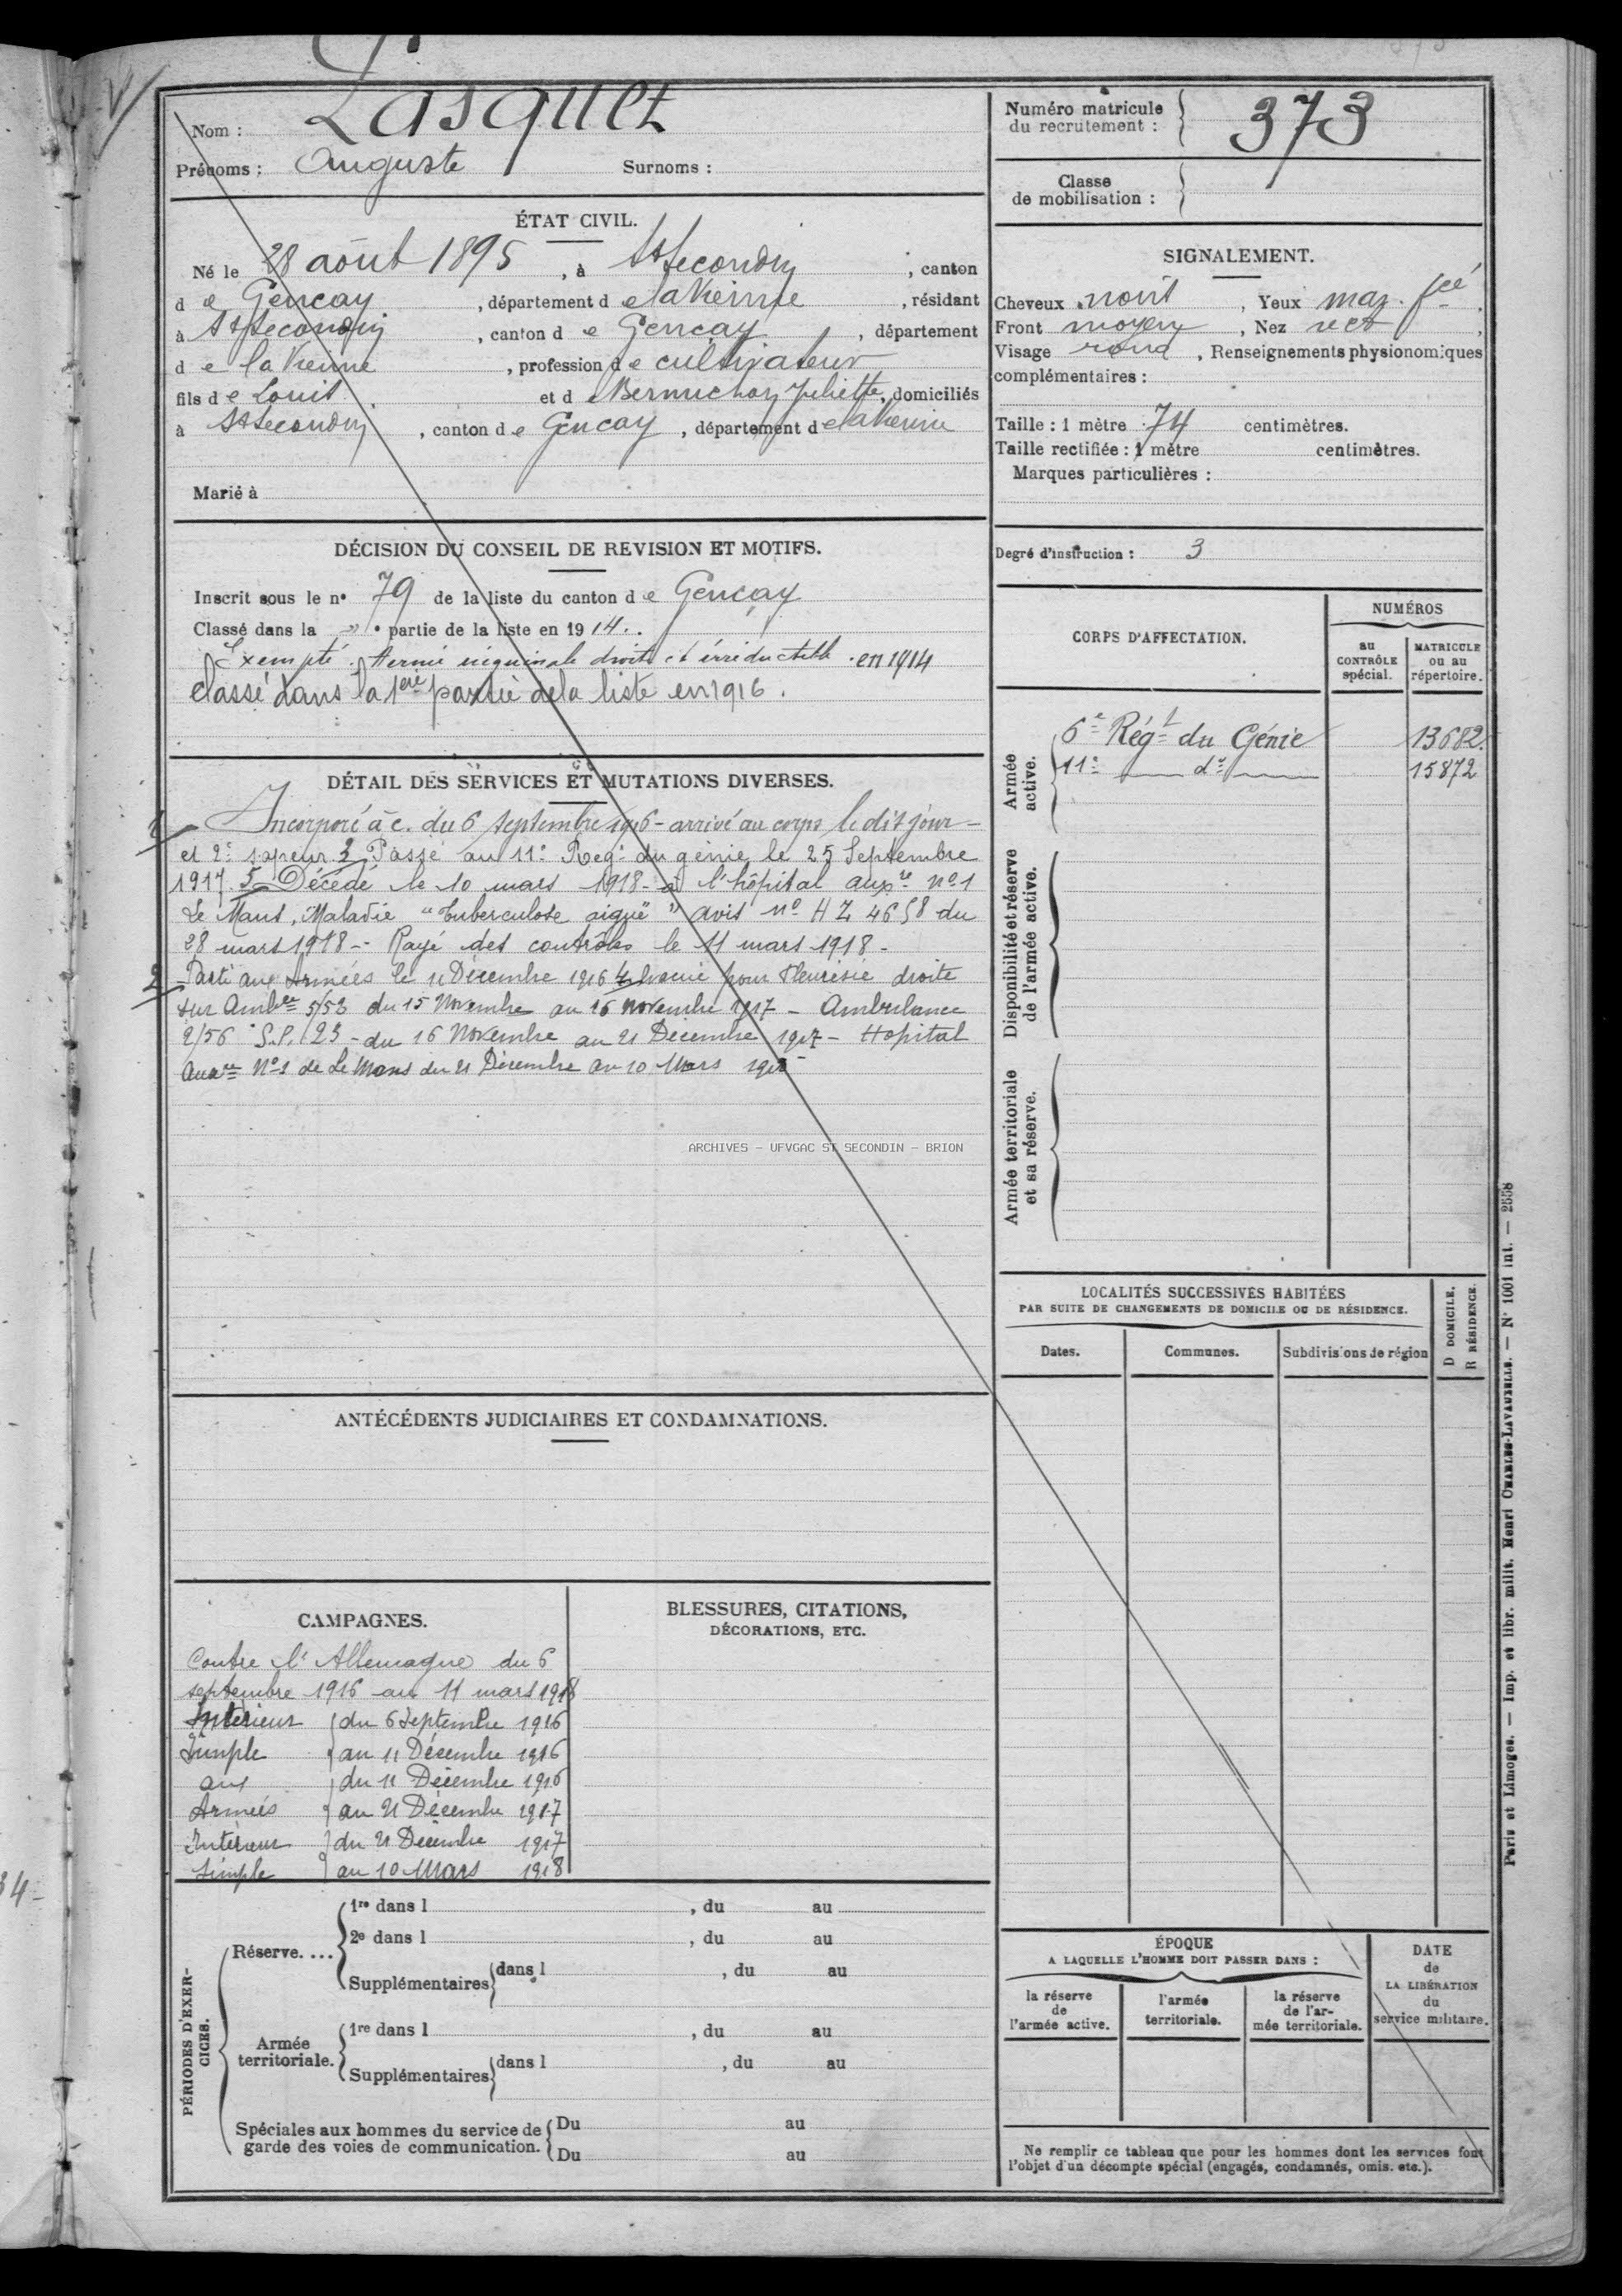 Nom : Lasquet
Prénoms : Auguste Surnoms :
Numéro matricule du recrutement : 373
Classe de mobilisation :
ÉTAT CIVIL.
Né le 28 août 1895, à St Secondin, canton
de Gençay, département de la Vienne, résidant
à St Secondin, canton de Gençay, département
de la Vienne, profession de cultivateur
fils de Louis et de Bernuchon Juliette, domiciliés
à St Secondin, canton de Gençay, département de la Vienne
Marié à
SIGNALEMENT.
Cheveux noirs, Yeux mar. fcé
Front moyen, Nez rect
Visage rond, Renseignements physionomiques
complémentaires :
Taille : 1 mètre 74 centimètres.
Taille rectifiée : 1 mètre centimètres.
Marques particulières :
Degré d'instruction : 3
DÉCISION DU CONSEIL DE REVISION ET MOTIFS.
Inscrit sous le n° 79 de la liste du canton de Gençay
Classé dans la » partie de la liste en 1914.
Exempté. Hernie inguinale droite et irréductible. en 1914
classé dans la 1ère partie de la liste en 1916.
DÉTAIL DES SERVICES ET MUTATIONS DIVERSES.
1 Incorporé à c. du 6 septembre 1916 - arrivé au corps le dit jour -
et 2e sapeur. 3 Passé au 11e Régt du génie le 25 Septembre
1917. 5 Décédé le 10 mars 1918 - à l'hôpital auxre no 1
Le Mans, Maladie "Tuberculose aiguë" avis no HZ 4658 du
28 mars 1918 - Rayé des contrôles le 11 mars 1918 -
2 Parti aux Armées le 11 Décembre 1916 4 Evacué pour Pleurésie droite
sur Ambce 5/53 du 15 Novembre au 16 novembre 1917 - Ambulance
2/56 S.P. 23 - du 16 Novembre au 21 Décembre 1917 - Hôpital
Auxre No 1 de Le Mans du 21 Décembre au 10 Mars 1918
ARCHIVES - UFVGAC ST SECONDIN - BRION
CORPS D'AFFECTATION.
NUMÉROS
au CONTRÔLE spécial.
MATRICULE ou au répertoire.
Armée active.
6e Régt du Génie 13682.
11e do 15872
Disponibilité et réserve de l'armée active.
Armée territoriale et sa réserve.
LOCALITÉS SUCCESSIVES HABITÉES
PAR SUITE DE CHANGEMENTS DE DOMICILE OU DE RÉSIDENCE.
Dates. Communes. Subdivisions de région
D DOMICILE.
R RÉSIDENCE.
ANTÉCÉDENTS JUDICIAIRES ET CONDAMNATIONS.
CAMPAGNES.
Contre l'Allemagne du 6
septembre 1916 au 11 mars 1918
Intérieur du 6 Septembre 1916
Simple au 11 Décembre 1916
aux du 11 Décembre 1916
Armées au 21 Décembre 1917
Intérieur du 21 Décembre 1917
simple au 10 Mars 1918
BLESSURES, CITATIONS,
DÉCORATIONS, ETC.
PÉRIODES D'EXERCICES.
Réserve....
1re dans l , du au
2e dans l , du au
Supplémentaires dans l , du au
Armée territoriale.
1re dans l , du au
Supplémentaires dans l , du au
Spéciales aux hommes du service de
garde des voies de communication.
Du au
Du au
ÉPOQUE
A LAQUELLE L'HOMME DOIT PASSER DANS :
la réserve de l'armée active.
l'armée territoriale.
la réserve de l'armée territoriale.
DATE de LA LIBÉRATION du service militaire.
Ne remplir ce tableau que pour les hommes dont les services font
l'objet d'un décompte spécial (engagés, condamnés, omis. etc.).
Paris et Limoges. — Imp. et libr. milit. Henri CHARLES-LAVAUZELLE. — N° 1001 int. — 2558
34-